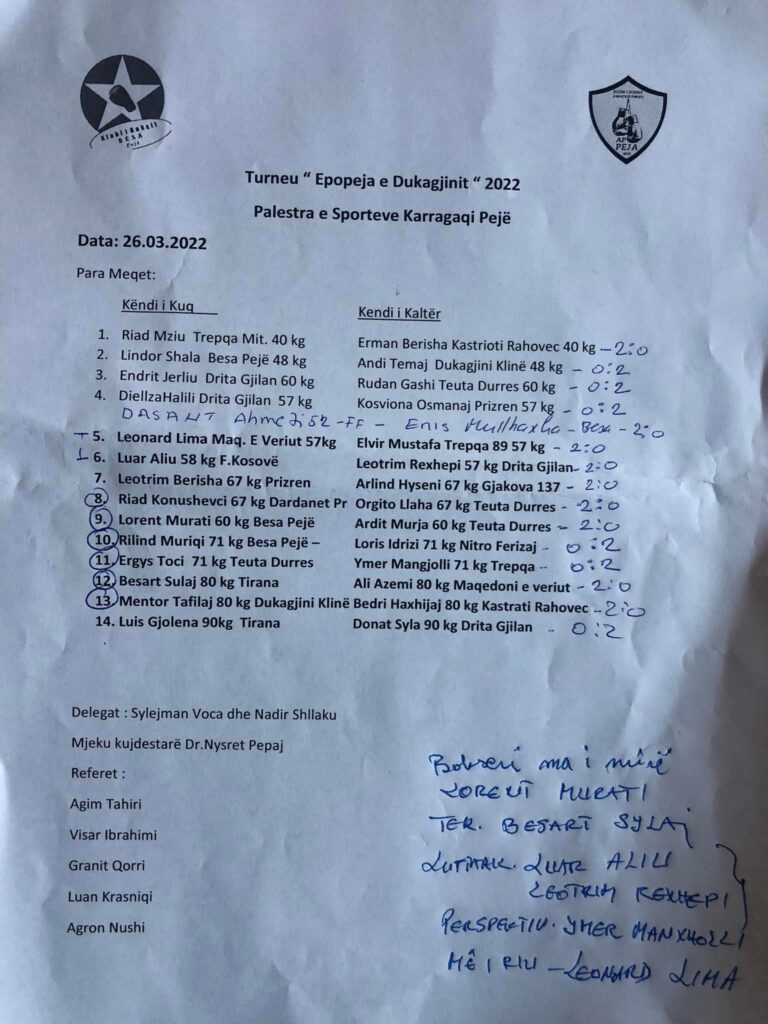 Klubi i Boksit
BESA
Pejë
PEJA
Turneu “ Epopeja e Dukagjinit “ 2022
Palestra e Sporteve Karragaqi Pejë
Data: 26.03.2022
Para Meqet:
Këndi i Kuq Kendi i Kaltër
1. Riad Mziu Trepqa Mit. 40 kg Erman Berisha Kastrioti Rahovec 40 kg – 2:0
2. Lindor Shala Besa Pejë 48 kg Andi Temaj Dukagjini Klinë 48 kg - 0:2
3. Endrit Jerliu Drita Gjilan 60 kg Rudan Gashi Teuta Durres 60 kg - 0:2
4. DiellzaHalili Drita Gjilan 57 kg Kosviona Osmanaj Prizren 57 kg - 0:2
DASANT - FF - Enis - Besa - 2:0
5. Leonard Lima Maq. E Veriut 57kg Elvir Mustafa Trepqa 89 57 kg - 2:0
6. Luar Aliu 58 kg F.Kosovë Leotrim Rexhepi 57 kg Drita Gjilan- 2:0
7. Leotrim Berisha 67 kg Prizren Arlind Hyseni 67 kg Gjakova 137 - 2:0
8. Riad Konushevci 67 kg Dardanet Pr Orgito Llaha 67 kg Teuta Durres - 2:0
9. Lorent Murati 60 kg Besa Pejë Ardit Murja 60 kg Teuta Durres – 2:0
10. Rilind Muriqi 71 kg Besa Pejë – Loris Idrizi 71 kg Nitro Ferizaj - 0:2
11. Ergys Toci 71 kg Teuta Durres Ymer Mangjolli 71 kg Trepqa -- 0:2
12. Besart Sulaj 80 kg Tirana Ali Azemi 80 kg Maqedoni e veriut - 2:0
13. Mentor Tafilaj 80 kg Dukagjini Klinë Bedri Haxhijaj 80 kg Kastrati Rahovec - 2:0
14. Luis Gjolena 90kg Tirana Donat Syla 90 kg Drita Gjilan - 0:2
Delegat : Sylejman Voca dhe Nadir Shllaku
Mjeku kujdestarë Dr.Nysret Pepaj
Referet :
Agim Tahiri
Visar Ibrahimi
Granit Qorri
Luan Krasniqi
Agron Nushi
Bokseri ma i mirë
LORENT MURATI
TEK. BESART SYLAJ
LUFTARAK. LUAR ALIU
LEOTRIM REXHEPI
PERSPEKTIV. YMER MANXHOLLI
MË I RIU – LEONARD LIMA